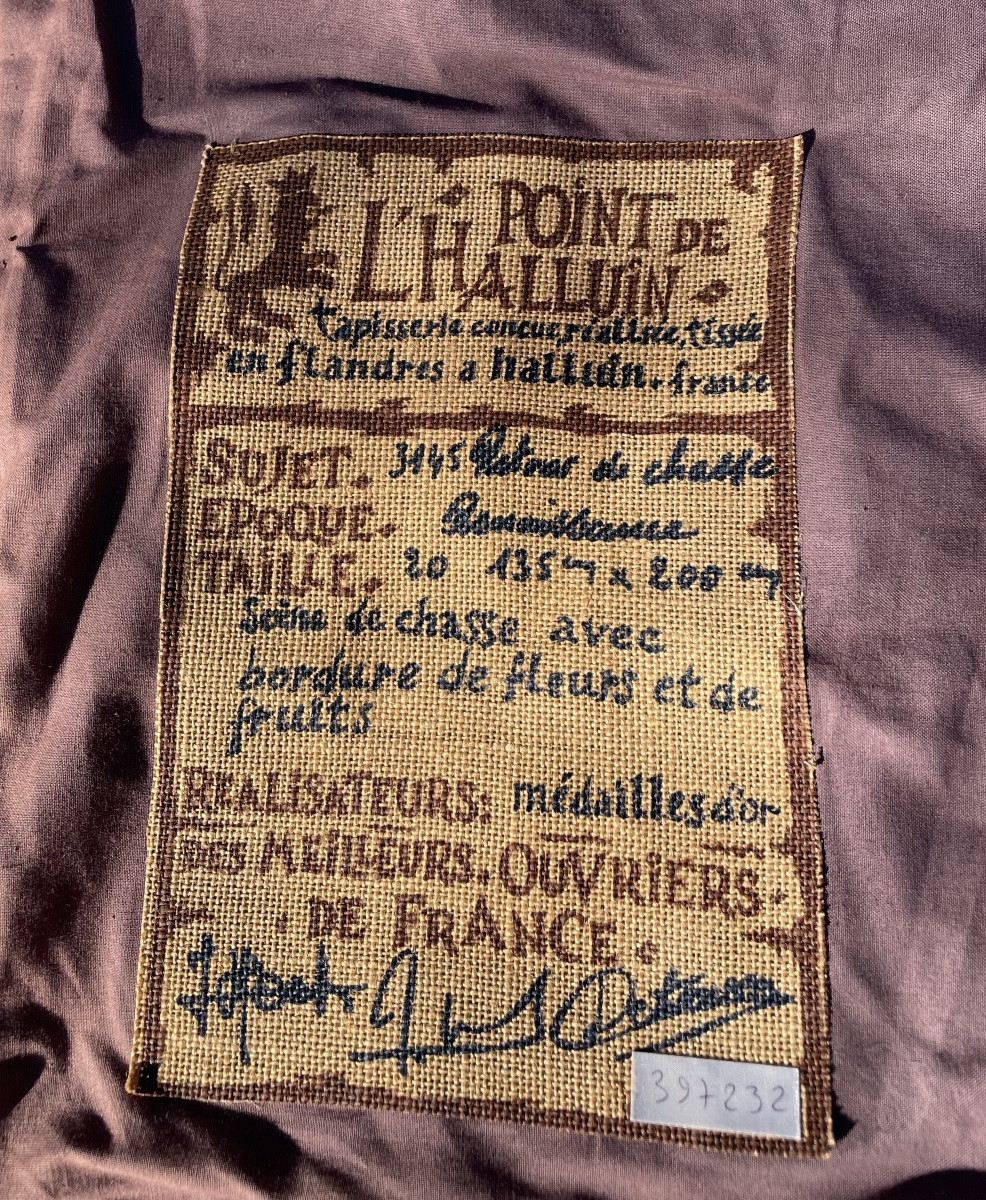 POINT DE
L'HALLUIN
tapisserie concue, réalisée, tissée
en flandres a halluin. france
SUJET. 3145 Retour de chasse
EPOQUE. Renaissance
TAILLE. 20 135 cm x 200 cm
Scène de chasse avec
bordure de fleurs et de
fruits
REALISATEURS: médailles d'or
DES MEILLEURS. OUVRIERS.
. DE FRANCE.
397232